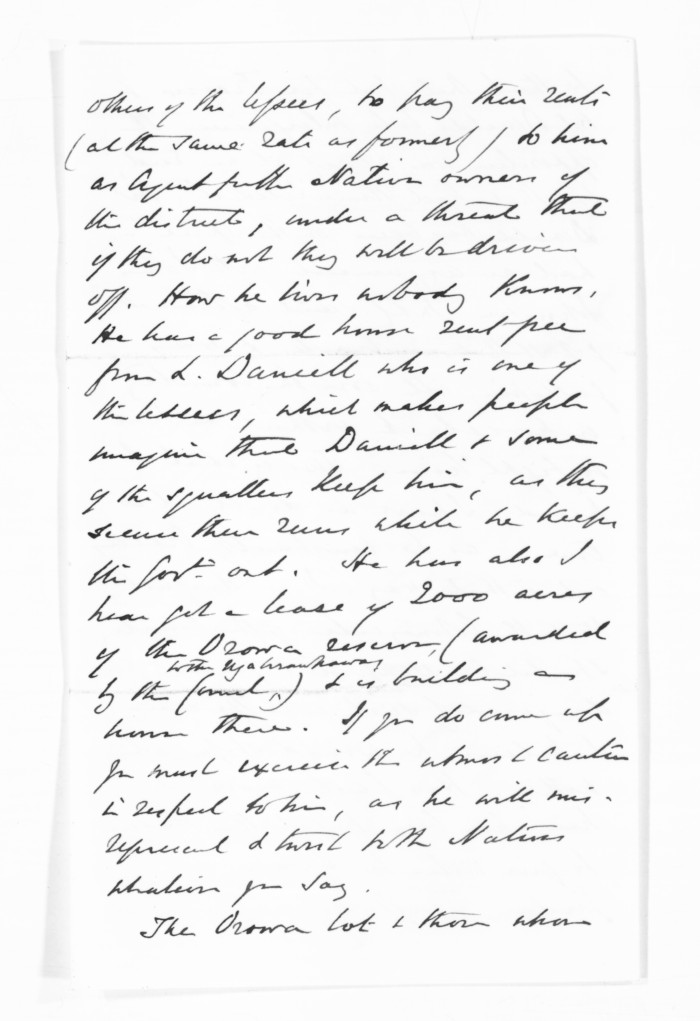 others of the lessees, to pay their rents
(at the same rate as formerly) to him
as Agent for the Native owners of
the district, under a threat that
if they do not they will be driven
off. How he lives nobody knows.
He has a good house rent free
from L. Daniell who is one of
the lessees, which makes people
imagine that Daniell & some
of the squatters keep him, as they
secure their runs while he keeps
the Govt. out. He has also I
hear got a lease of 2000 acres
of the Orowa reserve, (awarded
to the Ngatirau Kawas
by the Court) & is building a
house there. If you do come up
you must exercise the utmost caution
in respect to him, as he will mis-
represent & twist to the Natives
whatever you say.
The Orowa lot & those whom